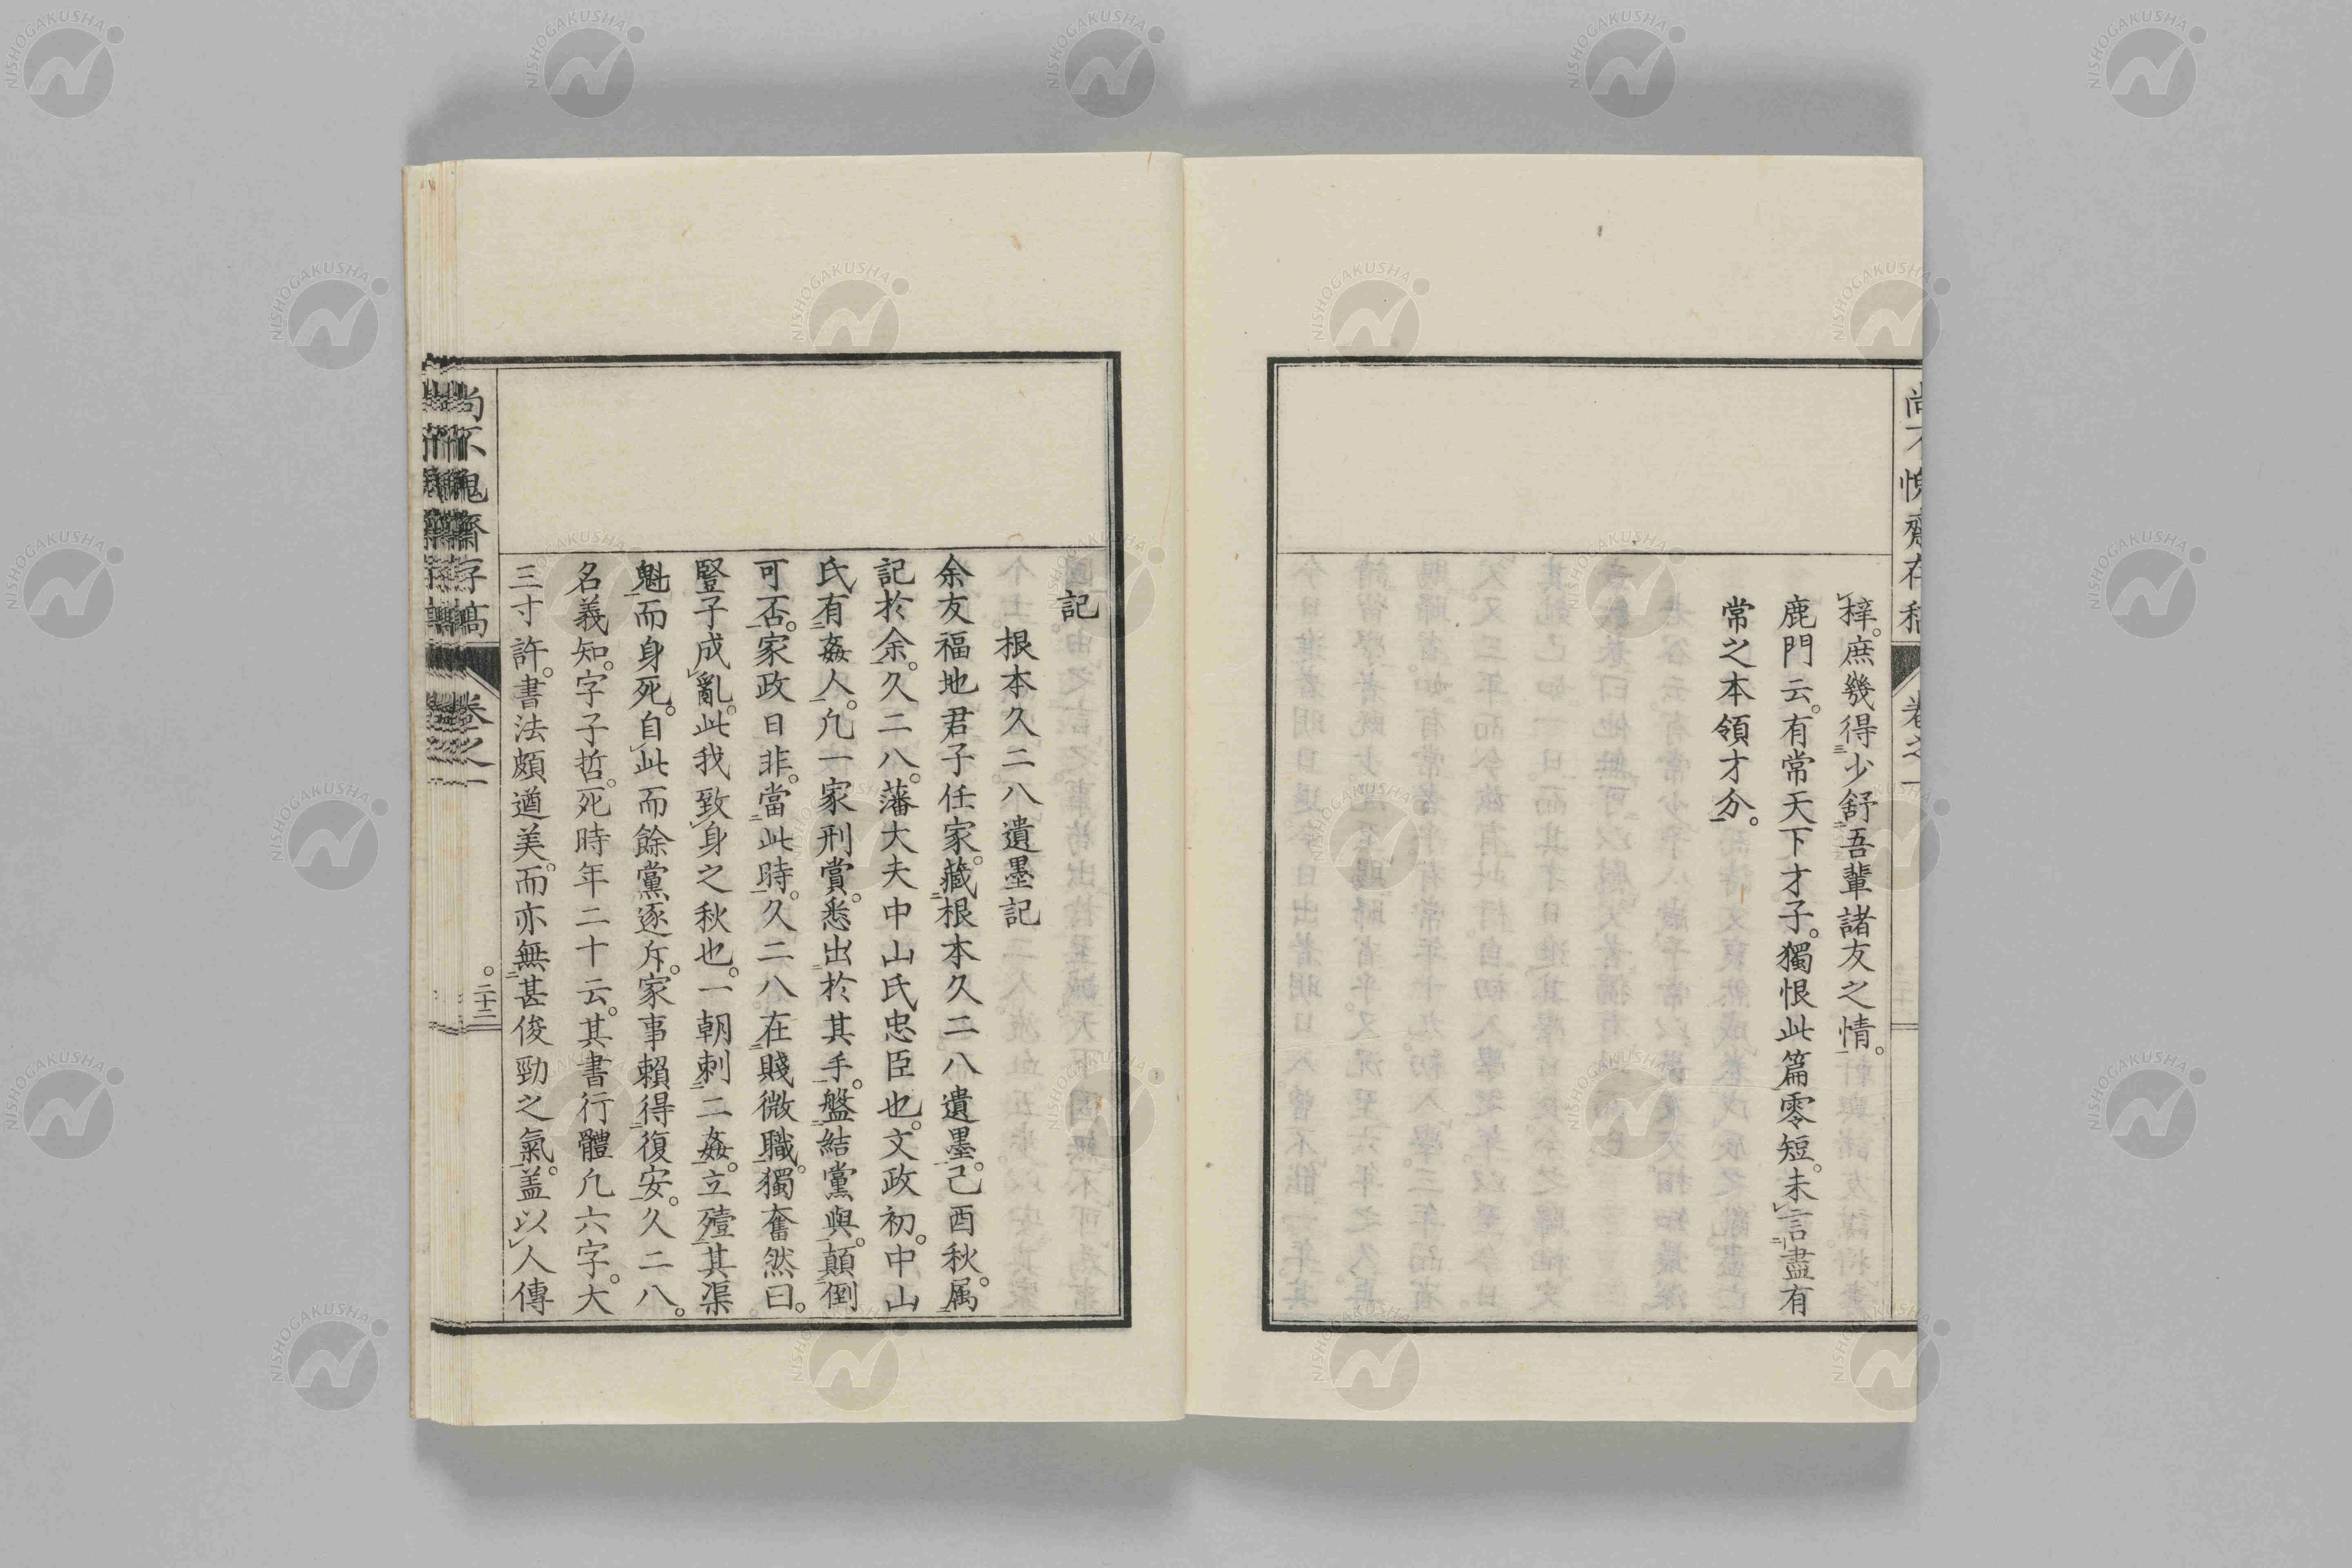 梓。庶幾得少舒吾輩諸友之情。
鹿門云。有常天下才子。獨恨此篇零短。未言盡有
常之本領才分。
記
根本久二八遺墨記
余友福地君子任家。藏根本久二八遺墨。己酉秋。属
記於余。久二八。藩大夫中山氏忠臣也。文政初。中山
氏有姦人。凢一家刑賞。悉出於其手。盤結黨與。顛倒
可否。家政日非。當此時。久二八在賤微職。獨奮然曰。
豎子成亂。此我致身之秋也。一朝刺二姦。立殪其渠
魁而身死。自此而餘黨逐斥。家事賴得復安。久二八。
名義知。字子哲。死時年二十云。其書行體凢六字。大
三寸許。書法頗遒美。而亦無甚俊勁之氣。盖以人傳
尚不愧齋存稿 卷之一 二十三
NISHOGAKUSHA